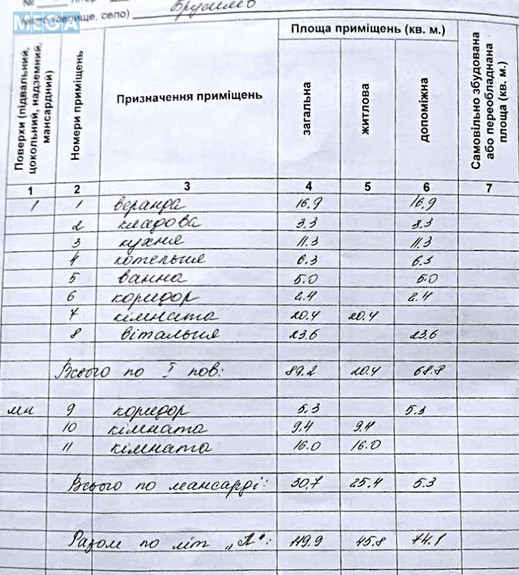 №
MEGA
місто (селище, село) Брусилів
Площа приміщень (кв. м.)
Поверхи (підвальний, цокольний, надземний, мансардний)
Номери приміщень
Призначення приміщень
загальна
житлова
допоміжна
Самовільно збудована або переобладнана площа (кв. м.)
1 2 3 4 5 6 7
1 1 веранда 16.9 16.9
2 кладова 3.3 3.3
3 кухня 11.3 11.3
4 котельня 6.3 6.3
5 ванна 5.0 5.0
6 коридор 2.4 2.4
7 кімната 20.4 20.4
8 вітальня 23.6 23.6
Всього по І пов: 89.2 20.4 68.8
мн 9 коридор 5.3 5.3
10 кімната 9.4 9.4
11 кімната 16.0 16.0
Всього по мансарді: 30.7 25.4 5.3
Разом по літ „А": 119.9 45.8 74.1